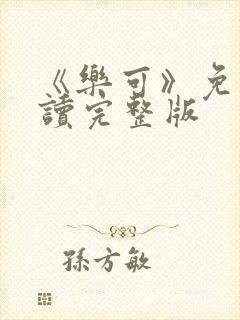 《樂可》免
讀完整版
孫方敏